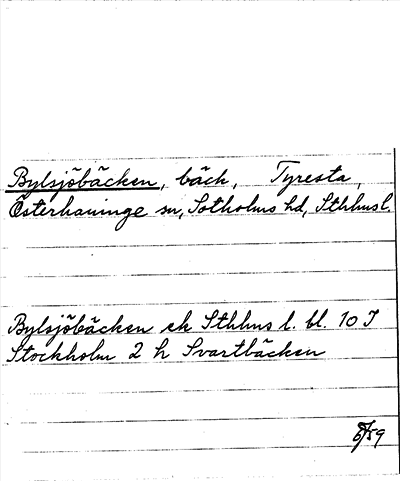 Bylsjöbäcken, bäck, Tyresta,
Österhaninge sn, Sotholms hd, Sthlms l.
Bylsjöbäcken ek Sthlms l. bl. 10 I
Stockholm 2 h Svartbäcken